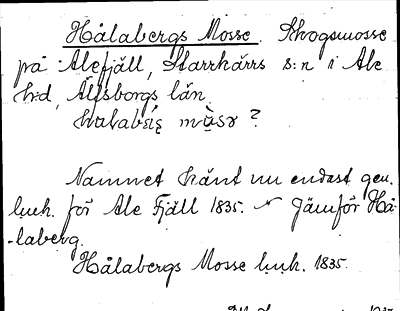 Hålabergs Mosse. Skogsmosse
på Alefjäll, Starrkärrs s:n i Ale
hd, Älfsborgs län.
?
Namnet känt nu endast gen.
luh. för Ale Fjäll 1835. Jämför Hå-
-laberg.
Hålabergs Mosse luh. 1835.